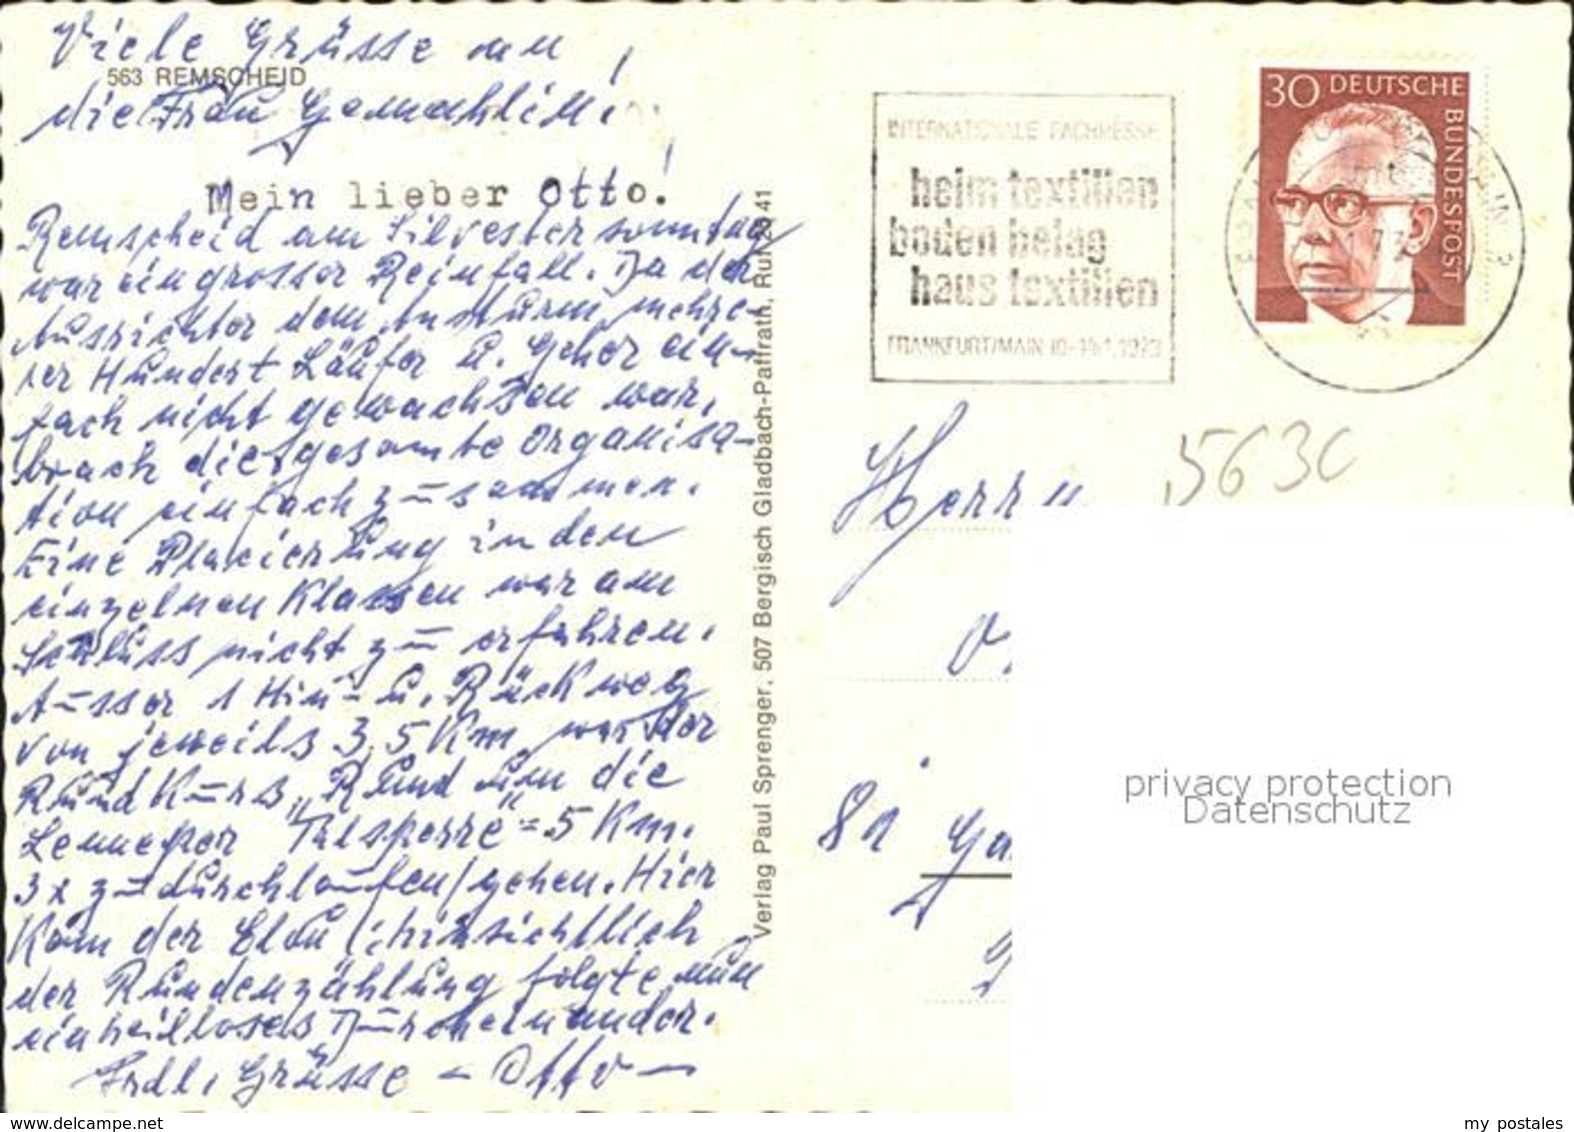 Viele Grüsse an
563 REMSCHEID
die Frau Gemahlin!
Mein lieber Otto!
Remscheid am Silvestersonntag
war ein grosser Reinfall. Da der
Ausrichter dem Ansturm mehre-
rer Hundert Läufer u. Geher ein-
fach nicht gewachsen war,
brach die gesamte Organisa-
tion einfach zusammen.
Eine Placierung in den
einzelnen Klassen war am
Schluss nicht zu erfahren.
Ausser 1 Hin- u. Rückweg
von jeweils 3,5 Km, war der
Rundkurs „Rund um die
Lenneper Talsperre" = 5 Km.
3x zu durchlaufen/gehen. Hier
kam der Clou!: hinsichtlich
der Rundenzählung folgte nun
ein heilloses Durcheinander.
Frdl. Grüsse - Otto -
Verlag Paul Sprenger, 507 Bergisch Gladbach-Paffrath, Ruf 41
INTERNATIONALE FACHMESSE
heim textilien
boden belag
haus textilien
FRANKFURT/MAIN 10-14.1.1973
30 DEUTSCHE
BUNDESPOST
Herrn
5630
81 Ga
privacy protection
Datenschutz
www.ansichtskartenversand.com
my postales